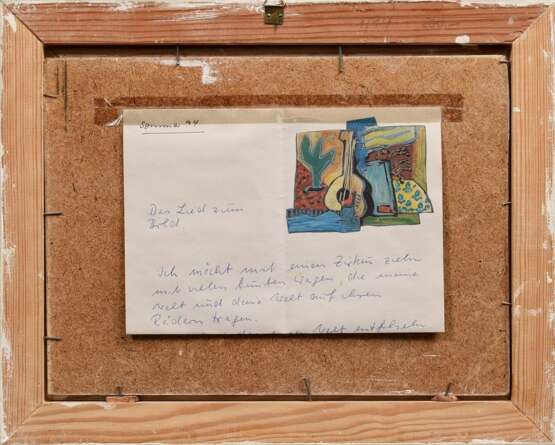 Sommer 94
Das Lied zum
Bild
Ich möcht mit einem Zirkus ziehn
mit vielen bunten Wagen, die meine
Welt und deine Welt auf ihren
Rädern tragen.
Welt entfliehn